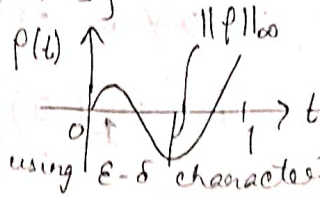 ||p||∞
p(t)
t
0
1
using ε-δ character